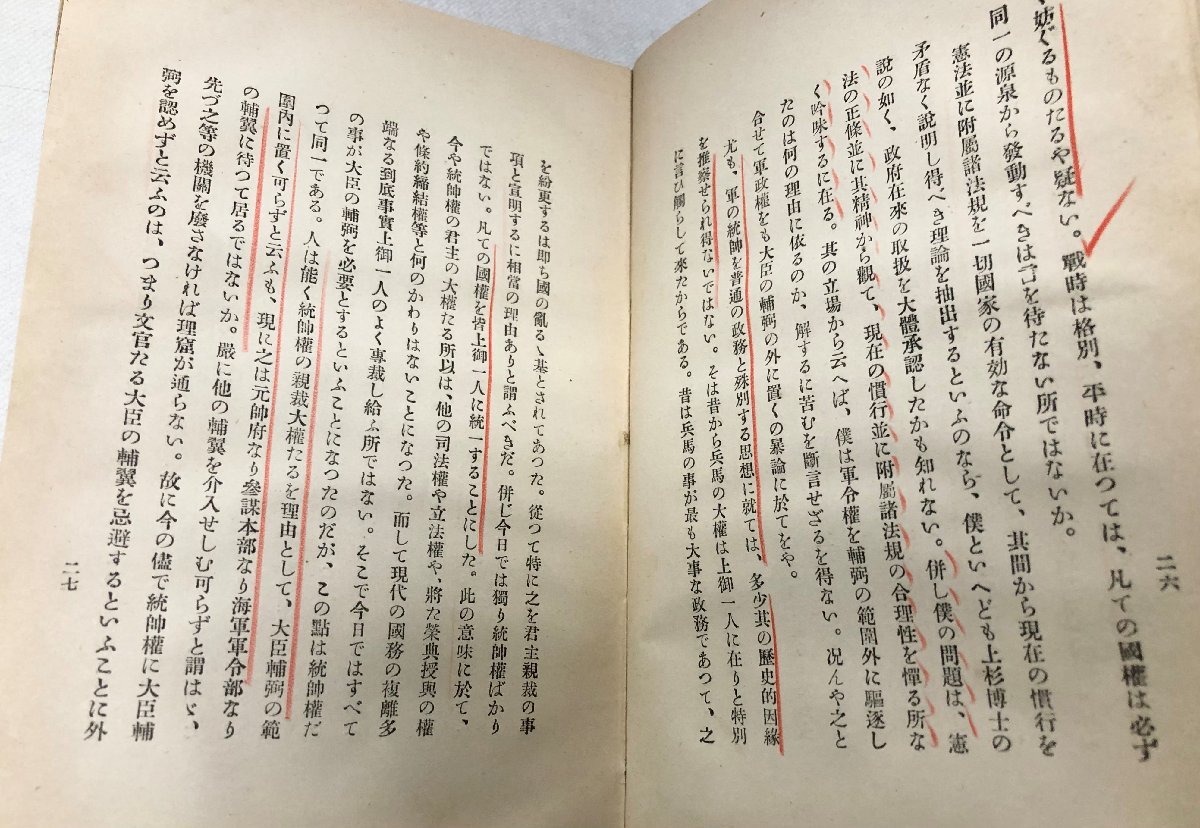 二六
妨ぐるものたるや疑ない。戰時は格別、平時に在つては、凡ての國權は必ず
同一の源泉から發動すべきは言を待たない所ではないか。
憲法並に附屬諸法規を一切國家の有効な命令として、其間から現在の慣行を
矛盾なく說明し得べき理論を抽出するといふのなら、僕といへども上杉博士の
說の如く、政府在來の取扱を大體承認したかも知れない。併し僕の問題は、憲
法の正條並に其精神から觀て、現在の慣行並に附屬諸法規の合理性を憚る所な
く吟味するに在る。其の立場から云へば、僕は軍令權を輔弼の範圍外に驅逐し
たのは何の理由に依るのか、解するに苦むを斷言せざるを得ない。况んや之と
合せて軍政權をも大臣の輔弼の外に置くの暴論に於てをや。
尤も、軍の統帥を普通の政務と殊別する思想に就ては、多少其の歷史的因緣
を推察せられ得ないではない。そは昔から兵馬の大權は上御一人に在りと特別
に言ひ觸らして來たからである。昔は兵馬の事が最も大事な政務であつて、之
を紛更するは卽ち國の亂るゝ基とされてあつた。從つて特に之を君主親裁の事
項と宣明するに相當の理由ありと謂ふべきだ。併し今日では獨り統帥權ばかり
ではない。凡ての國權を皆上御一人に統一することにした。此の意味に於て、
今や統帥權の君主の大權たる所以は、他の司法權や立法權や、將た榮典授與の權
や條約締結權等と何のかわりはないことになつた。而して現代の國務の複雜多
端なる到底事實上御一人のよく專裁し給ふ所ではない。そこで今日ではすべて
の事が大臣の輔弼を必要とするといふことになつたのだが、この點は統帥權だ
つて同一である。人は能く統帥權の親裁大權たるを理由として、大臣輔弼の範
圍內に置く可らずと云ふも、現に之は元帥府なり參謀本部なり海軍軍令部なり
の輔翼に待つて居るではないか。嚴に他の輔翼を介入せしむ可らずと謂はゞ、
先づ之等の機關を廢さなければ理窟が通らない。故に今の儘で統帥權に大臣輔
弼を認めずと云ふのは、つまり文官たる大臣の輔翼を忌避するといふことに外
二七